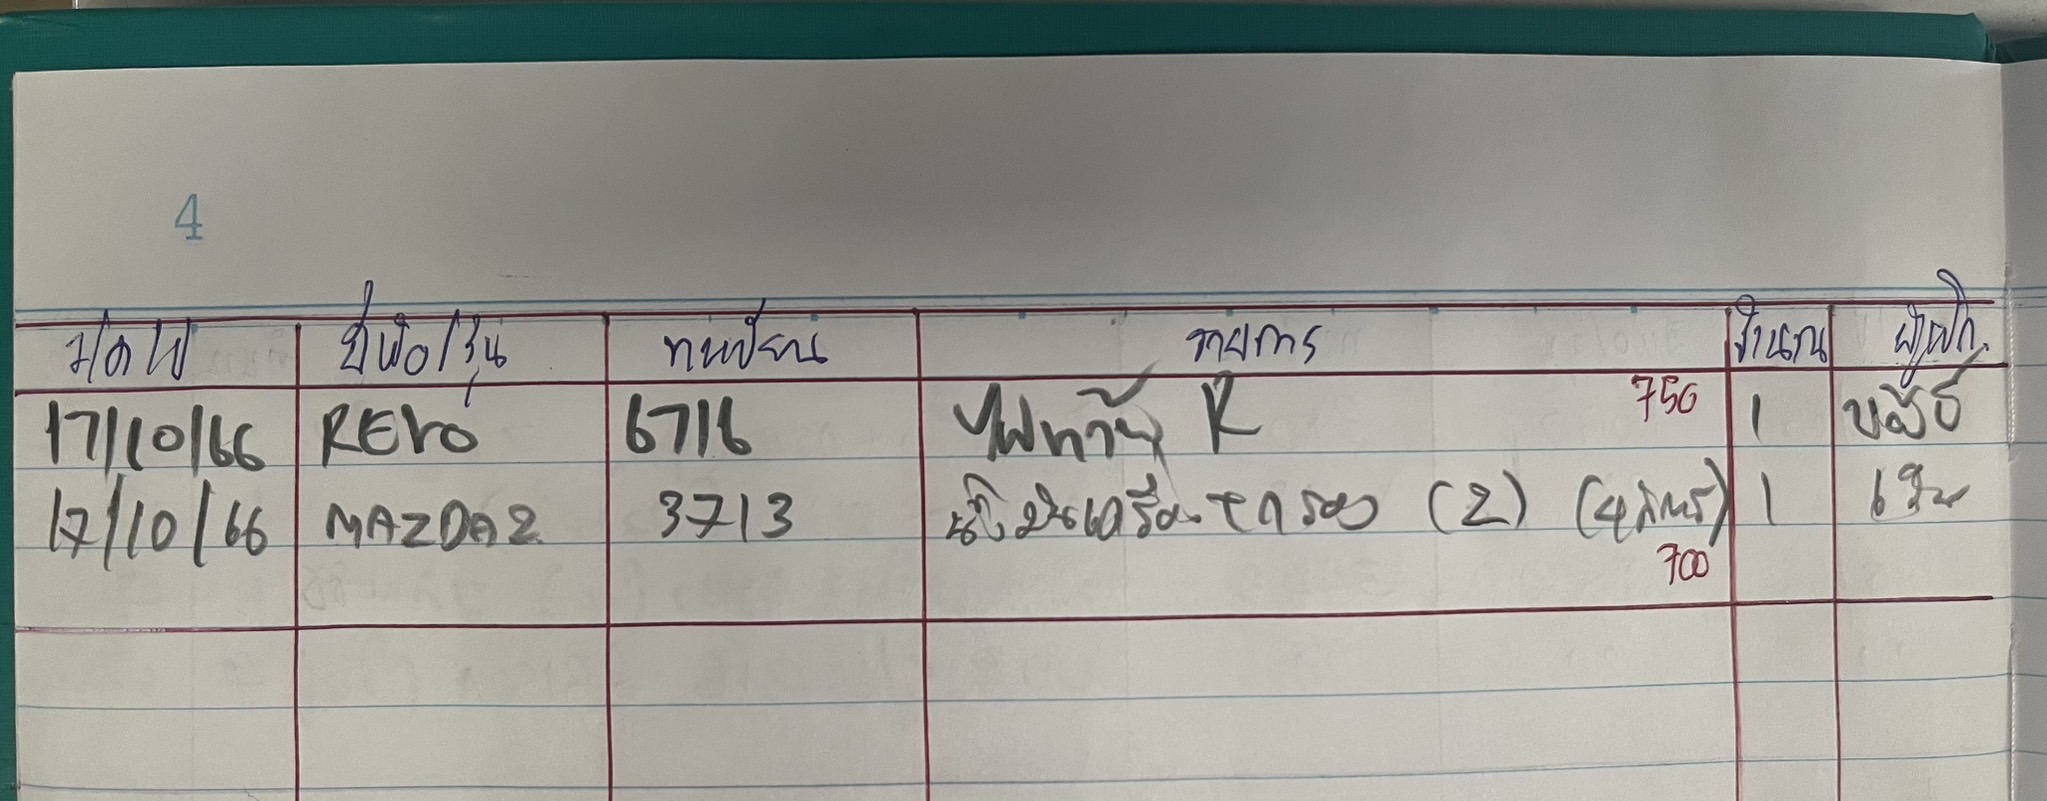 4
ว/ด/ป ยี่ห้อ/รุ่น ทะเบียน รายการ จำนวน ผู้เบิก
17/10/66 REVO 6716 ไฟท้าย R 750 1
17/10/66 MAZDA2 3713 น้ำมันเครื่อง+กรอง (2) (4ลิตร) 1
700